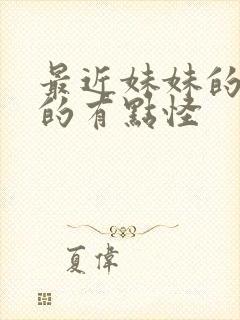 最近妹妹的
的有點怪
夏偉